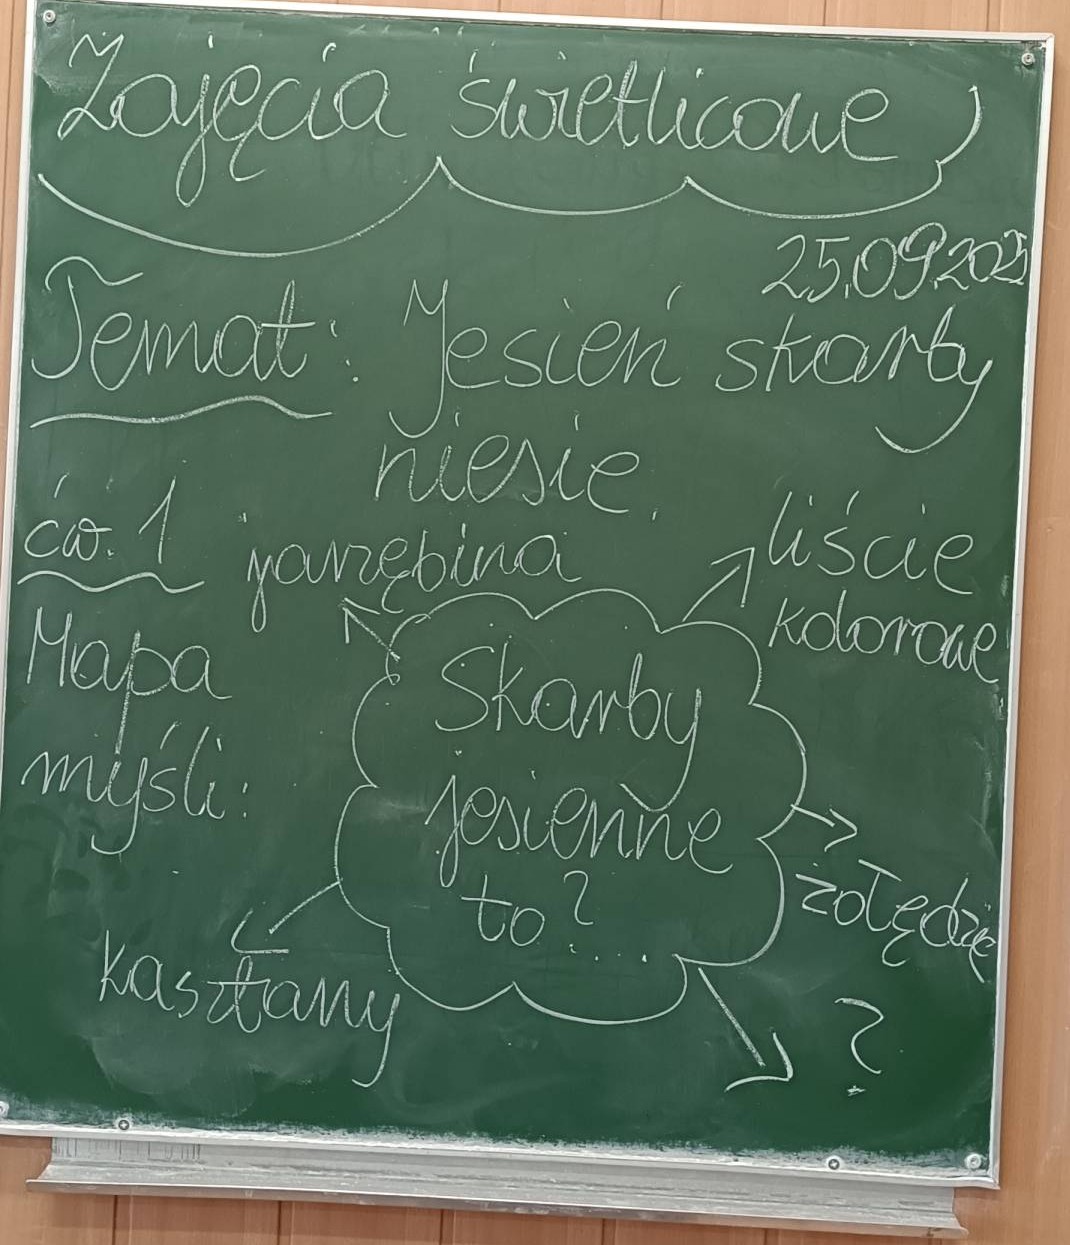 Zajęcia świetlicowe
25.09.2025
Temat: Jesień skarby
niesie.
ćw. 1
Mapa
myśli:
jarzębina
liście
kolorowe
Skarby
jesienne
to? ...
żołędzie
kasztany
?